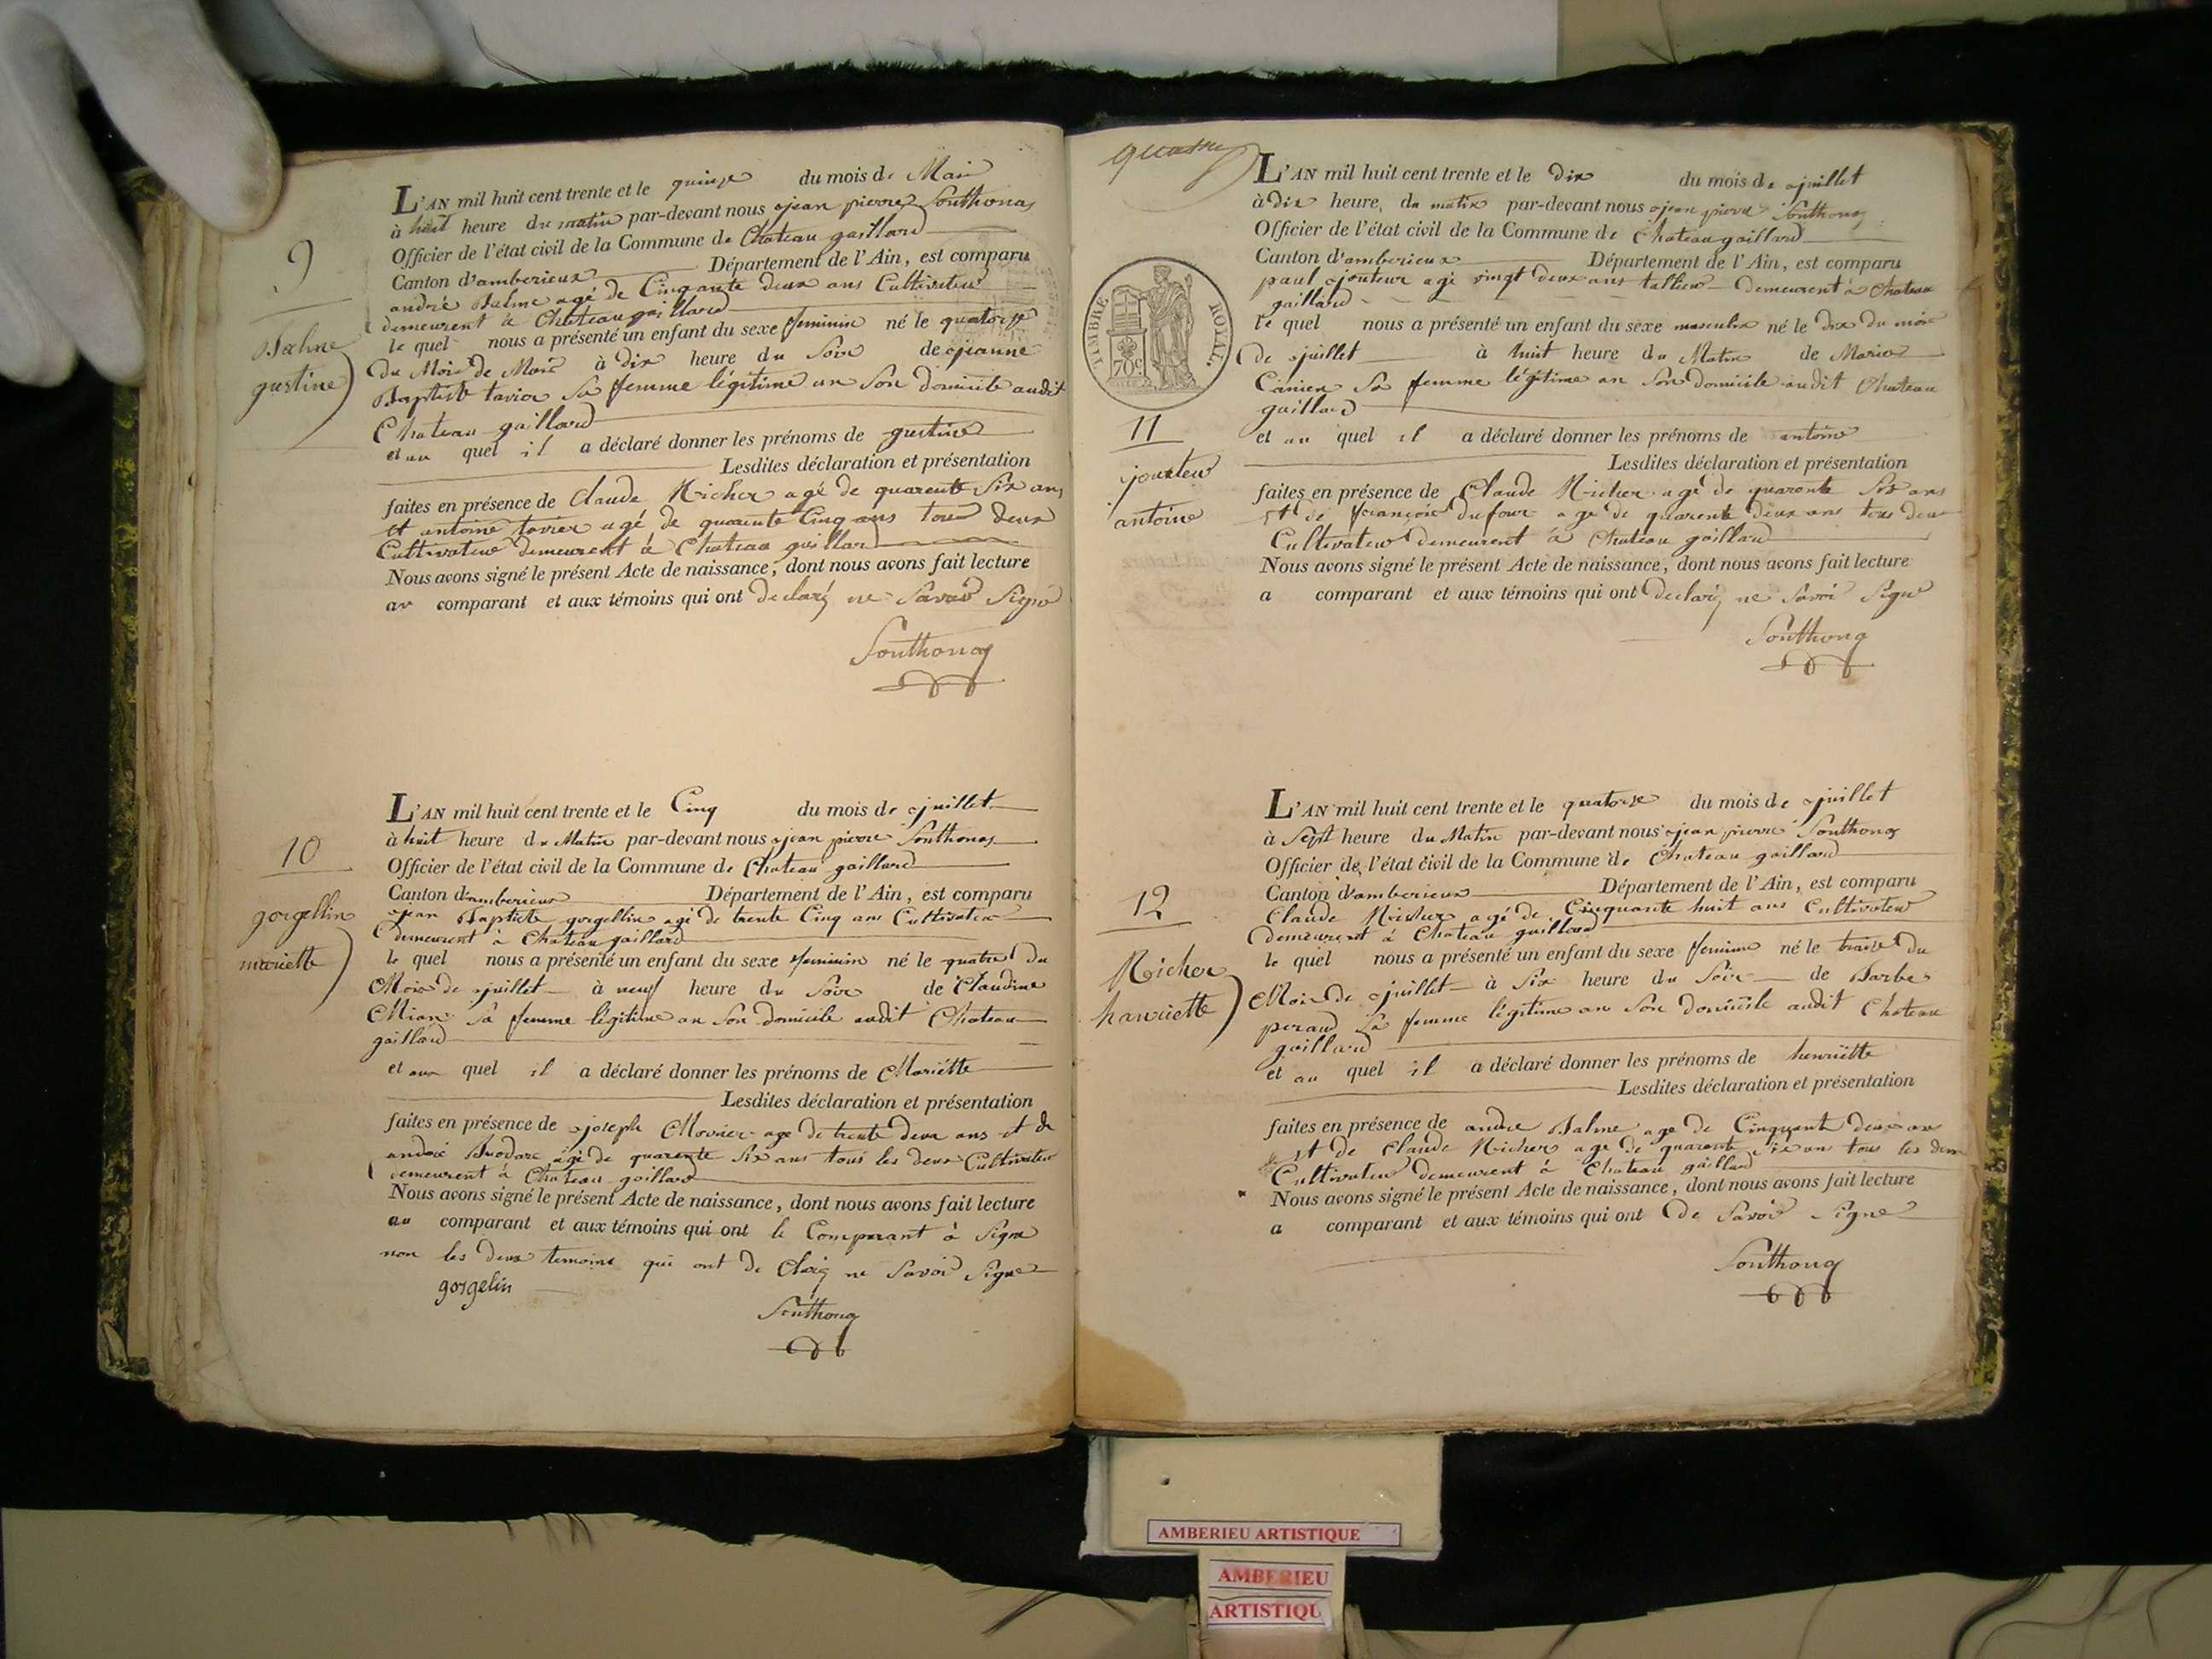 9
Balme
gustine
L'AN mil huit cent trente et le quinze du mois de Mai
à huit heure du matin par-devant nous jean pierre Southonas
Officier de l'état civil de la Commune de Chateau gaillard
Canton d'amberieux Département de l'Ain, est comparu
andré Balme agé de Cinqante deux ans Cultivateur
demeurent à Chateau gaillard
le quel nous a présenté un enfant du sexe feminin né le quatorze
du Mois de Mai à dix heure du Soir de jeanne
Baptiste tavier Sa femme légitime an Son domicile audit
Chateau gaillard
et au quel il a déclaré donner les prénoms de gustine
Lesdites déclaration et présentation
faites en présence de Claude Richer agé de quarente Six ans
et antoine tavier agé de quarente Cinq ans tous deux
Cultivateur demeurent à Chateau gaillard
Nous avons signé le présent Acte de naissance, dont nous avons fait lecture
au comparant et aux témoins qui ont declaré ne Savoir Signé
Southonas
10
gorgellin
mariette
L'AN mil huit cent trente et le Cinq du mois de juillet
à huit heure du Matin par-devant nous jean pierre Southonas
Officier de l'état civil de la Commune de Chateau gaillard
Canton d'amberieux Département de l'Ain, est comparu
jean Baptiste gorgellin agé de trente Cinq ans Cultivateur
demeurent à Chateau gaillard
le quel nous a présenté un enfant du sexe feminin né le quatre du
Mois de juillet à neuf heure du Soir de Claudine
Mian Sa femme légitime an Son domicile audit Chateau
gaillard
et au quel il a déclaré donner les prénoms de Mariétte
Lesdites déclaration et présentation
faites en présence de joseph Movrier age de trente deux ans et de
andré agé de quarente Six ans tous les deux Cultivateur
demeurent à Chateau gaillard
Nous avons signé le présent Acte de naissance, dont nous avons fait lecture
au comparant et aux témoins qui ont le Comparant à Signé
non les deux temoins qui ont de Claré ne Savoir Signé
gorgelin
Southonas
quatre
TIMBRE ROYAL
70c
11
jouteur
antoine
L'AN mil huit cent trente et le dix du mois de juillet
à dix heure du matin par-devant nous jean pierre Southonas
Officier de l'état civil de la Commune de Chateau gaillard
Canton d'amberieux Département de l'Ain, est comparu
paul jouteur agé vingt deux ans tallieur demeurent à Chateau
gaillard
le quel nous a présenté un enfant du sexe masculin né le dix du mois
de juillet à huit heure du Matin de Marie
Canier Sa femme légitime an Son domicile audit Chateau
gaillard
et au quel il a déclaré donner les prénoms de antoine
Lesdites déclaration et présentation
faites en présence de Claude Richer agé de quarente Six ans
et de françois dufour agé de quarente deux ans tous deux
Cultivateur demeurent à Chateau gaillard
Nous avons signé le présent Acte de naissance, dont nous avons fait lecture
a comparant et aux témoins qui ont declaré ne Savoir Signé
Southonas
12
Richer
hanriette
L'AN mil huit cent trente et le quatorze du mois de juillet
à Sept heure du Matin par-devant nous jean pierre Southonas
Officier de l'état civil de la Commune de Chateau gaillard
Canton d'amberieux Département de l'Ain, est comparu
Claude Richer agé de Cinquante huit ans Cultivateur
demeurent à Chateau gaillard
le quel nous a présenté un enfant du sexe feminin né le traize du
Mois de juillet à Six heure du Soir de Barbe
peraud Sa femme légitime an Son domicile audit Chateau
gaillard
et au quel il a déclaré donner les prénoms de henriètte
Lesdites déclaration et présentation
faites en présence de andré Balme age de Cinquant deux ans
et de Claude Richer age de quarente Six an tous les deux
Cultivateur demeurent à Chateau gaillard
Nous avons signé le présent Acte de naissance, dont nous avons fait lecture
a comparant et aux témoins qui ont de Savoir Signé
Southonas
AMBERIEU ARTISTIQUE
AMBERIEU
ARTISTIQU